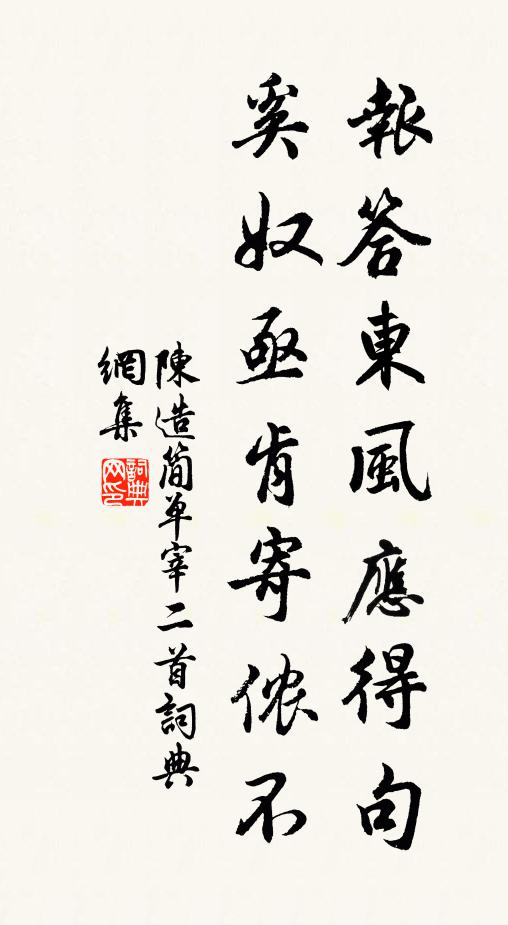 報答東風應得句
奚奴亟肯寄儂不
陳造簡单宰二首詞典
網集
詞典网印